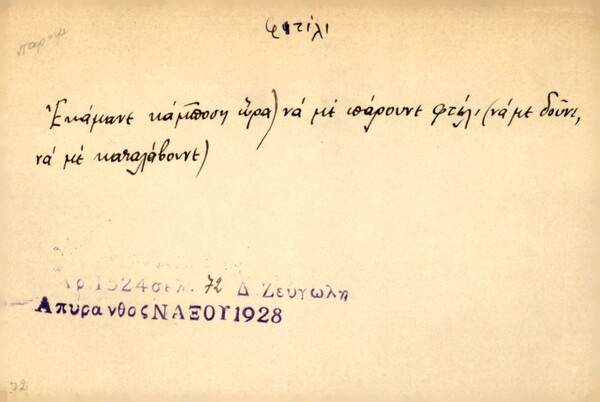 φυτίλι
παροιμ
Ἐκάμανε κάμποση ὥρα) νά μέ πάρουνε φτίλι (νά με δοῦνε,
νά μέ καταλάβουνε)
Ἀρ. 1524 σελ. 72 Δ. Ζευγώλη
Απυρανθος ΝΑΞΟΥ 1928
72